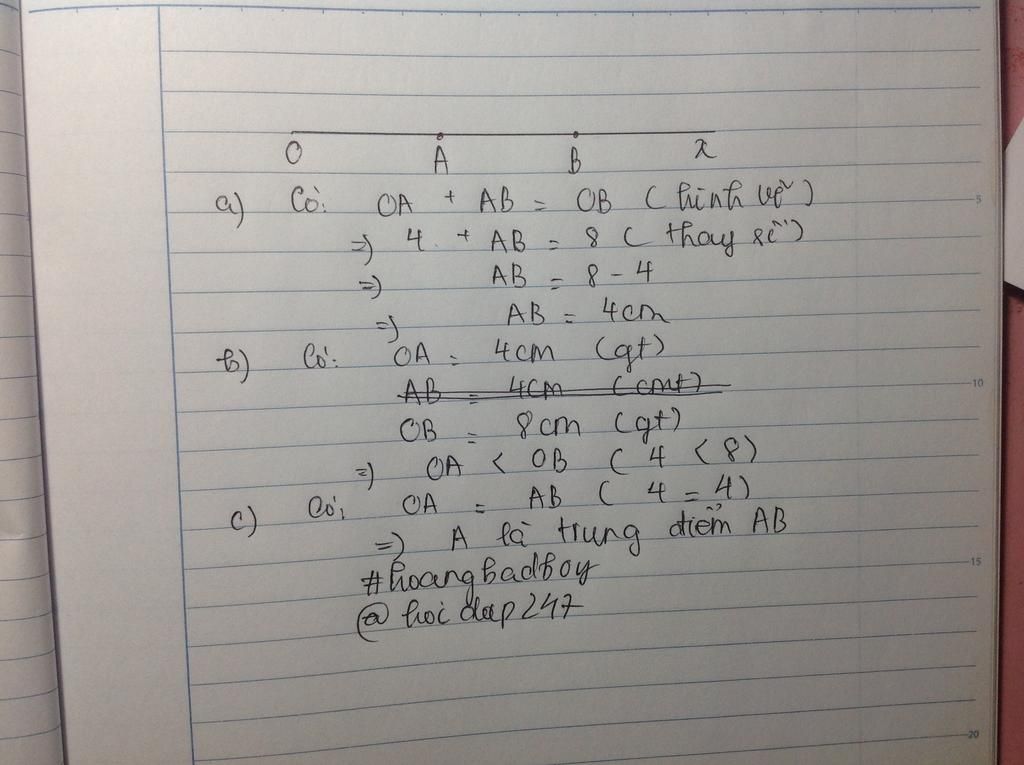 O A B x
a) Có: OA + AB = OB (hình vẽ)
=) 4 + AB = 8 ( thay số)
=) AB = 8 - 4
=) AB = 4cm
b) Có: OA = 4cm (gt)
AB = 4cm (cmt)
OB = 8cm (gt)
=) OA < OB ( 4 < 8)
c) Có: OA = AB ( 4 = 4)
=) A là trung điểm AB
#hoangbadboy
@hoidap247
5
10
15
20